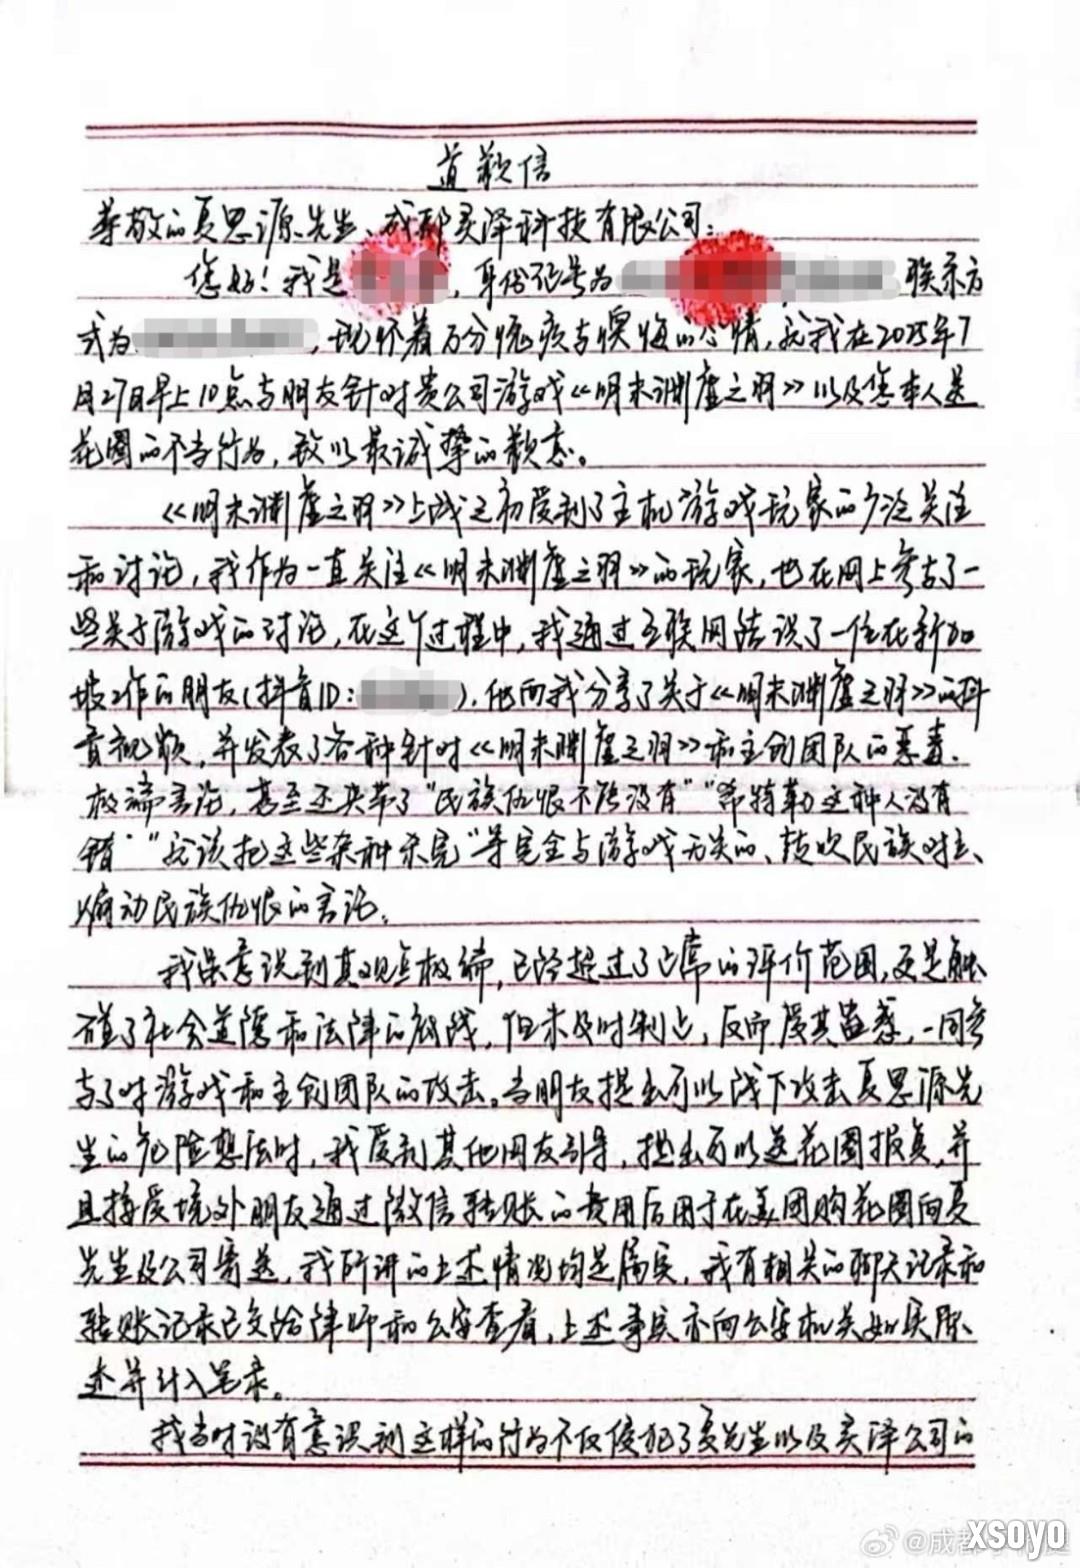 道歉信
尊敬的夏思源先生、成都灵泽科技有限公司：
您好！我是，身份证号为，联系方
式为，现怀着万分愧疚与懊悔的心情，就我在2025年7
月27日早上10点与朋友针对贵公司游戏《明末渊虚之羽》以及您本人送
花圈的不当行为，致以最诚挚的歉意。
《明末渊虚之羽》上线之初受到了主机游戏玩家的广泛关注
和讨论，我作为一直关注《明末渊虚之羽》的玩家，也在网上参与了一
些关于游戏的讨论，在这个过程中，我通过互联网结识了一位在新加
坡工作的朋友(抖音ID：)，他向我分享了关于《明末渊虚之羽》的抖
音视频，并发表了各种针对《明末渊虚之羽》和主创团队的恶毒、
极端言论，甚至还夹带了"民族仇恨不能没有""希特勒这种人没有
错""就该把这些杂种杀完"等完全与游戏无关的、鼓吹民族对立、
煽动民族仇恨的言论。
我虽意识到其观点极端，已经超过了正常的评价范围，更是触
碰了社会道德和法律的底线，但未及时制止，反而受其蛊惑，一同参
与了对游戏和主创团队的攻击。当朋友提出可以线下攻击夏思源先
生的危险想法时，我受到其他网友引导，提出可以送花圈报复，并
且接受境外朋友通过微信转账的费用后用于在美团购花圈向夏
先生及公司寄送，我所讲的上述情况均是属实，我有相关的聊天记录和
转账记录已交给律师和公安查看，上述事实亦向公安机关如实陈
述并计入笔录。
我当时没有意识到这样的行为不仅侵犯了夏先生以及灵泽公司的
@成都
xsoyo